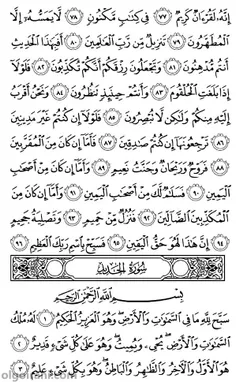 إِنَّهُۥ لَقُرْءَانٌ كَرِيمٌ ٧٧ فِى كِتَٰبٍ مَّكْنُونٍ ٧٨ لَّا يَمَسُّهُۥٓ إِلَّا
ٱلْمُطَهَّرُونَ ٧٩ تَنزِيلٌ مِّن رَّبِّ ٱلْعَٰلَمِينَ ٨٠ أَفَبِهَٰذَا ٱلْحَدِيثِ
أَنتُم مُّدْهِنُونَ ٨١ وَتَجْعَلُونَ رِزْقَكُمْ أَنَّكُمْ تُكَذِّبُونَ ٨٢ فَلَوْلَآ
إِذَا بَلَغَتِ ٱلْحُلْقُومَ ٨٣ وَأَنتُمْ حِينَئِذٍ تَنظُرُونَ ٨٤ وَنَحْنُ أَقْرَبُ
إِلَيْهِ مِنكُمْ وَلَٰكِن لَّا تُبْصِرُونَ ٨٥ فَلَوْلَآ إِن كُنتُمْ غَيْرَ مَدِينِينَ
٨٦ تَرْجِعُونَهَآ إِن كُنتُمْ صَٰدِقِينَ ٨٧ فَأَمَّآ إِن كَانَ مِنَ ٱلْمُقَرَّبِينَ
٨٨ فَرَوْحٌ وَرَيْحَانٌ وَجَنَّتُ نَعِيمٍ ٨٩ وَأَمَّآ إِن كَانَ مِنْ أَصْحَٰبِ
ٱلْيَمِينِ ٩٠ فَسَلَٰمٌ لَّكَ مِنْ أَصْحَٰبِ ٱلْيَمِينِ ٩١ وَأَمَّآ إِن كَانَ مِنَ
ٱلْمُكَذِّبِينَ ٱلضَّآلِّينَ ٩٢ فَنُزُلٌ مِّنْ حَمِيمٍ ٩٣ وَتَصْلِيَةُ جَحِيمٍ
٩٤ إِنَّ هَٰذَا لَهُوَ حَقُّ ٱلْيَقِينِ ٩٥ فَسَبِّحْ بِٱسْمِ رَبِّكَ ٱلْعَظِيمِ ٩٦
سُورَةُ الحَدِيدِ
بِسْمِ ٱللَّهِ ٱلرَّحْمَٰنِ ٱلرَّحِيمِ
سَبَّحَ لِلَّهِ مَا فِى ٱلسَّمَٰوَٰتِ وَٱلْأَرْضِ وَهُوَ ٱلْعَزِيزُ ٱلْحَكِيمُ ١ لَهُۥ مُلْكُ
ٱلسَّمَٰوَٰتِ وَٱلْأَرْضِ يُحْىِۦ وَيُمِيتُ وَهُوَ عَلَىٰ كُلِّ شَىْءٍ قَدِيرٌ ٢
هُوَ ٱلْأَوَّلُ وَٱلْءَاخِرُ وَٱلظَّٰهِرُ وَٱلْبَاطِنُ وَهُوَ بِكُلِّ شَىْءٍ عَلِيمٌ ٣